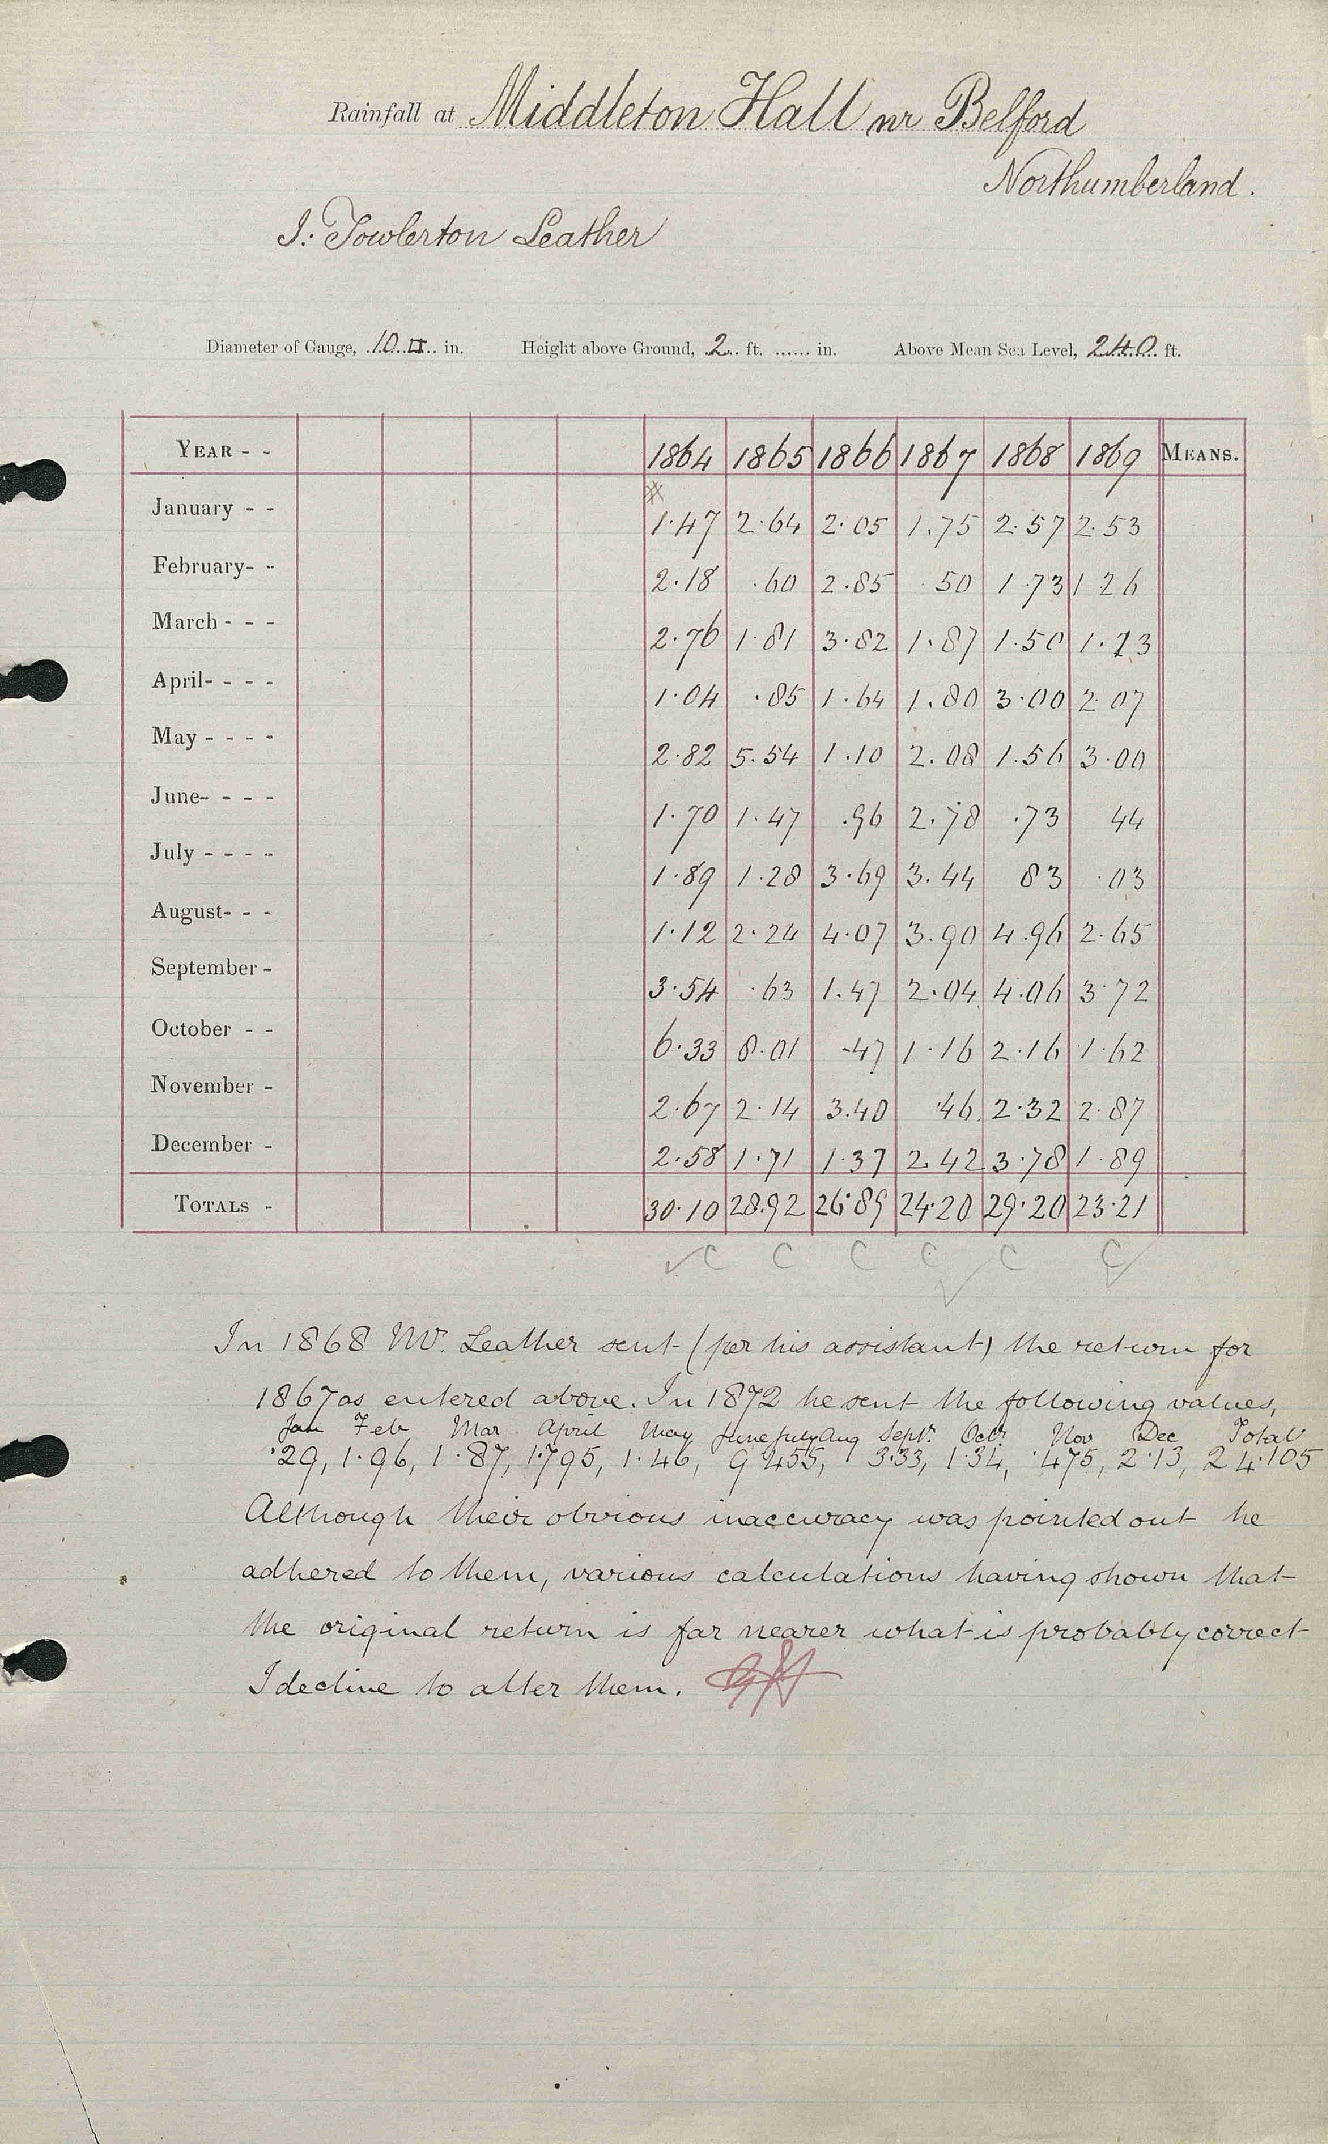 Rainfall at Middleton Hall nr Belford
Northumberland.
J. Towlerton Leather
Diameter of Gauge, 10 □ in. Height above Ground, 2 ft. ...... in. Above Mean Sea Level, 240 ft.
YEAR - - 1864 1865 1866 1867 1868 1869 MEANS.
January - - 1.47 2.64 2.05 1.75 2.57 2.53
February- - 2.18 .60 2.85 .50 1.73 1 26
March - - - 2.76 1.81 3.82 1.87 1.50 1.13
April- - - - 1.04 .85 1.64 1.80 3.00 2.07
May - - - - 2.82 5.54 1.10 2.08 1.56 3.00
June- - - - 1.70 1.47 .96 2.78 .73 44
July - - - - 1.89 1.28 3.69 3.44 83 .03
August- - - 1.12 2.24 4.07 3.90 4.96 2.65
September - 3.54 .63 1.47 2.04 4.06 3 72
October - - 6.33 8.01 .47 1.16 2.16 1.62
November - 2.67 2.14 3.40 .46 2.32 2.87
December - 2.58 1.71 1.37 2.42 3.78 1.89
TOTALS - 30.10 28.92 26.89 24.20 29.20 23.21
C C C C C C
In 1868 Mr. Leather sent (per his assistant) the return for
1867 as entered above. In 1872 he sent the following values,
Jan Feb Mar April May June July Aug Sept. Oct. Nov Dec Total
.29, 1.96, 1.87, 1.795, 1.46, 9 455, 3.33, 1.34, .475, 2.13, 24.105
Although their obvious inaccuracy was pointed out he
adhered to them, various calculations having shown that
the original return is far nearer what is probably correct
I decline to alter them.